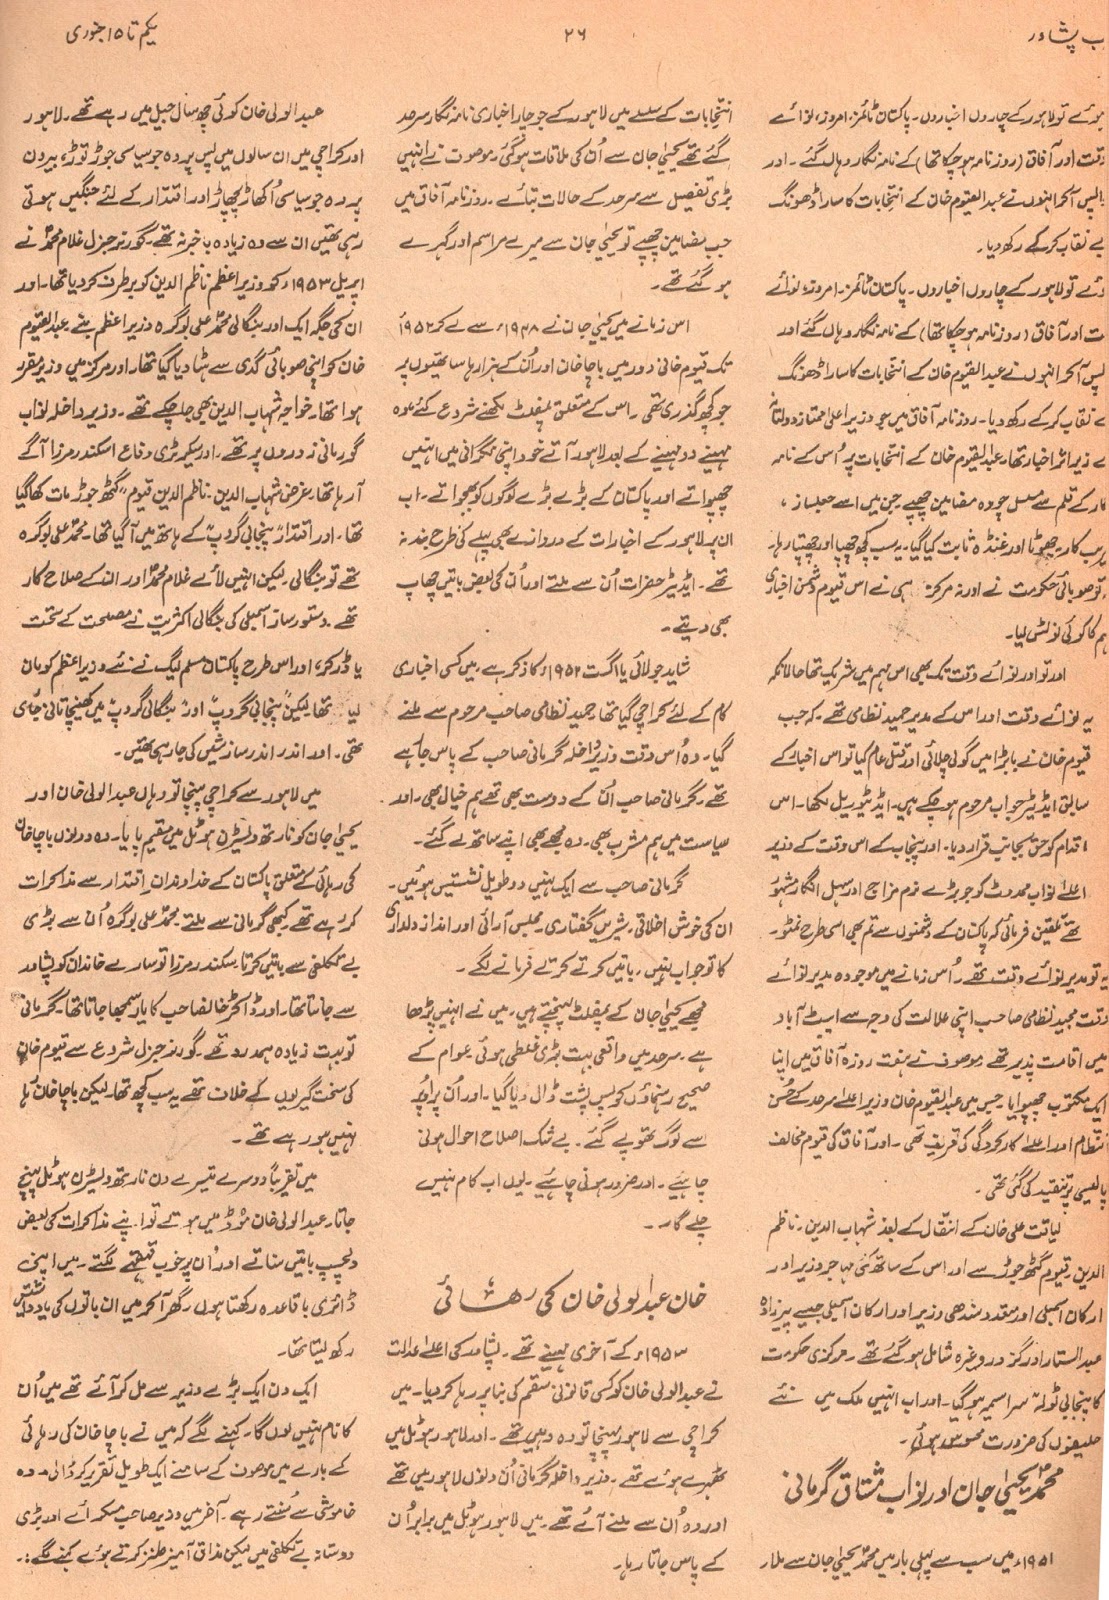 یکم تا ۱۵ جنوری
۲۶
ب پشاور
ہوئے تو لاہور کے چاروں اخباروں۔ پاکستان ٹائمز، امروز، نوائے
وقت اور آفاق (روزنامہ ہو چکا تھا) کے نامہ نگار وہاں گئے۔ اور
واپس آکر انہوں نے عبدالقیوم خان کے انتخابات کا سارا ڈھونگ
بے نقاب کر کے رکھ دیا۔
ئے تو لاہور کے چاروں اخباروں۔ پاکستان ٹائمز۔ امروز، نوائے
ت اور آفاق (روزنامہ ہو چکا تھا) کے نامہ نگار وہاں گئے اور
پس آکر انہوں نے عبدالقیوم خان کے انتخابات کا سارا ڈھونگ
نے نقاب کر کے رکھ دیا۔ روزنامہ آفاق میں جو وزیر اعلیٰ ممتاز دولتانہ
کے زیر اثر اخبار تھا، عبدالقیوم خان کے انتخابات پر اُس کے نامہ
نگار کے قلم سے مسلسل چودہ مضامین چھپے جن میں اسے جعلساز،
کار، جھوٹا اور غنڈہ ثابت کیا گیا۔ یہ سب کچھ چھپا اور چھپتا رہا۔
تو صوبائی حکومت نے اور نہ مرکز ہی نے اس قیوم دشمن اخباری
ہم کا کوئی نوٹس لیا۔
اور تو اور نوائے وقت تک بھی اس مہم میں شریک تھا حالانکہ
یہ نوائے وقت اور اس کے مدیر حمید نظامی تھے۔ کہ جب
قیوم خان نے بابڑا میں گولی چلائی اور قتل عام کیا تو اس اخبار کے
سابق ایڈیٹر جو اب مرحوم ہو چکے ہیں۔ ایڈیٹوریل لکھا۔ اس
اقدام کو حق بجانب قرار دیا۔ اور پنجاب کے اس وقت کے وزیر
اعلیٰ نواب ممدوٹ کو جو بڑے نرم مزاج اور سہل انگار مشہور
تھے تلقین فرمائی کہ پاکستان کے دشمنوں سے تم بھی اسی طرح نمٹو۔
یہ تو مدیر نوائے وقت تھے۔ اُس زمانے میں موجودہ مدیر نوائے
وقت مجید نظامی صاحب اپنی علالت کی وجہ سے ایبٹ آباد
میں اقامت پذیر تھے موصوف نے ہفت روزہ آفاق میں اپنا
ایک مکتوب چھپوایا۔ جس میں عبدالقیوم خان وزیر اعلیٰ سرحد کے حُسن
انتظام اور اعلیٰ کارکردگی کی تعریف تھی۔ اور آفاق کی قیوم مخالف
پالیسی پر تنقید کی گئی تھی۔
لیاقت علی خان کے انتقال کے بعد شہاب الدین۔ ناظم
الدین۔ قیوم گٹھ جوڑ سے اور اس کے ساتھ کئی مہاجر وزیر اور
ارکان اسمبلی اور متعدد سندھی وزیر اور ارکان اسمبلی جیسے پیرزادہ
عبدالستار اور گزدر وغیرہ شامل ہو گئے تھے۔ مرکزی حکومت
کا پنجابی ٹولہ سراسیمہ ہو گیا۔ اور اب انہیں ملک میں نئے
حلیفوں کی ضرورت محسوس ہوئی۔
محمد یحییٰ جان اور نواب مشتاق گرمانی
۱۹۵۱ء میں سب سے پہلی بار میں محمد یحییٰ جان سے ملا۔
انتخابات کے سلسلے میں لاہور کے جو چار اخباری نامہ نگار سرحد
گئے تھے یحییٰ جان سے اُن کی ملاقات ہو گئی۔ موصوف نے انہیں
بڑی تفصیل سے سرحد کے حالات بتائے۔ روزنامہ آفاق میں
جب مضامین چھپے تو یحییٰ جان سے میرے مراسم اور گہرے
ہو گئے تھے۔
اس زمانے میں یحییٰ جان نے ۱۹۴۸ء سے لے کر ۱۹۵۲ء
تک قیوم خانی دور میں باچا خان اور اُن کے ہزارہا ساتھیوں پر
جو کچھ گذری تھی۔ اس کے متعلق پمفلٹ لکھنے شروع کئے وہ
مہینے دو مہینے کے بعد لاہور آتے خود اپنی نگرانی میں انہیں
چھپواتے اور پاکستان کے بڑے بڑے لوگوں کو بھجواتے۔ اب
ان پر لاہور کے اخبارات کے دروازے بھی پہلے کی طرح بند نہ
تھے۔ ایڈیٹر حضرات اُن سے ملتے اور اُن کی بعض باتیں چھاپ
بھی دیتے۔
شاید جولائی یا اگست ۱۹۵۲ء کا ذکر ہے میں کسی اخباری
کام کے لئے کراچی گیا تھا، حمید نظامی صاحب مرحوم سے ملنے
گیا۔ وہ اُس وقت وزیر داخلہ گرمانی صاحب کے پاس جا رہے
تھے۔ گرمانی صاحب اُن کے دوست بھی تھے ہم خیال بھی۔ اور
سیاست میں ہم مشرب بھی۔ وہ مجھے بھی اپنے ساتھ لے گئے۔
گرمانی صاحب سے ایک نہیں دو طویل نشستیں ہوئیں۔
ان کی خوش اخلاقی، شیریں گفتاری، مجلس آرائی اور انداز دلداری
کا تو جواب نہیں۔ باتیں کرتے کرتے فرمانے لگے۔
مجھے یحییٰ جان کے پمفلٹ پہنچتے ہیں۔ میں نے انہیں پڑھا
ہے۔ سرحد میں واقعی بہت بڑی غلطی ہوئی۔ عوام کے
صحیح رہنماؤں کو پس پشت ڈال دیا گیا۔ اور اُن پر اوپر
سے لوگ تھوپے گئے۔ بے شک اصلاح احوال ہونی
چاہیے۔ اور ضرور ہونی چاہیے۔ یوں اب کام نہیں
چلے گا۔
خان عبدالولی خان کی رہائی
۱۹۵۳ء کے آخری مہینے تھے۔ پشاور کی اعلیٰ عدالت
نے عبدالولی خان کو کسی قانونی سقم کی بنا پر رہا کر دیا۔ میں
کراچی سے لاہور پہنچا تو وہ وہیں تھے۔ اور لاہور ہوٹل میں
ٹھہرے ہوئے تھے۔ وزیر داخلہ گرمانی اُن دنوں لاہور میں تھے
اور وہ اُن سے ملنے آئے تھے۔ میں لاہور ہوٹل میں برابر اُن
کے پاس جاتا رہا۔
عبدالولی خان کوئی چھ سال جیل میں رہے تھے۔ لاہور
اور کراچی میں ان سالوں میں پس پردہ جو سیاسی جوڑ توڑ، بیرون
پردہ جو سیاسی اُکھاڑ پچھاڑ اور اقتدار کے لئے جنگیں ہوتی
رہی تھیں ان سے وہ زیادہ باخبر نہ تھے۔ گورنر جنرل غلام محمد نے
اپریل ۱۹۵۳ء کو وزیر اعظم ناظم الدین کو برطرف کر دیا تھا۔ اور
ان کی جگہ ایک اور بنگالی محمد علی بوگرہ وزیر اعظم بنے۔ عبدالقیوم
خان کو اپنی صوبائی گدی سے ہٹا دیا گیا تھا، اور مرکز میں وزیر مقرر
ہوا تھا۔ خواجہ شہاب الدین بھی جا چکے تھے۔ وزیر داخلہ نواب
گورمانی زوروں پر تھے۔ اور سیکرٹری دفاع اسکندر مرزا آگے
آرہا تھا۔ غرض شہاب الدین۔ ناظم الدین قیوم "گٹھ جوڑ مات کھا گیا
تھا۔ اور اقتدار "پنجابی گروپ" کے ہاتھ میں آگیا تھا۔ محمد علی بوگرہ
تھے تو بنگالی۔ لیکن انہیں لائے غلام محمد اور ان کے صلاح کار
تھے۔ دستور ساز اسمبلی کی بنگالی اکثریت نے مصلحت کے تحت
یا ڈر کر، اور اس طرح پاکستان مسلم لیگ نے نئے وزیر اعظم کو مان
لیا تھا۔ لیکن "پنجابی گروپ" اور "بنگالی گروپ" میں کھینچا تانی جاری
تھی۔ اور اندر اندر سازشیں کی جا رہی تھیں۔
میں لاہور سے کراچی پہنچا تو وہاں عبدالولی خان اور
یحییٰ جان کو نارتھ ویسٹرن ہوٹل میں مقیم پایا۔ وہ دونوں باچا خان
کی رہائی کے متعلق پاکستان کے خداوندان اقتدار سے مذاکرات
کر رہے تھے۔ کبھی گرمانی سے ملتے۔ محمد علی بوگرہ اُن سے بڑی
بے تکلفی سے باتیں کرتا۔ سکندر مرزا تو سارے خاندان کو پشاور
سے جانتا تھا۔ اور ڈاکٹر خان صاحب کا یار سمجھا جاتا تھا۔ گرمانی
تو بہت زیادہ ہمدرد تھے۔ گورنر جنرل شروع سے قیوم خان
کی سخت گیریوں کے خلاف تھے۔ یہ سب کچھ تھا، لیکن باچا خان رہا
نہیں ہو رہے تھے۔
میں تقریباً دوسرے تیسرے دن نارتھ ویسٹرن ہوٹل پہنچ
جاتا۔ عبدالولی خان موڈ میں ہوتے تو اپنے مذاکرات کی بعض
دلچسپ باتیں سناتے اور اُن پر خوب قہقہے لگتے۔ میں اپنی
ڈائری باقاعدہ رکھتا ہوں۔ گھر آکر میں ان باتوں کی یادداشتیں
رکھ لیتا تھا۔
ایک دن ایک بڑے وزیر سے مل کر آئے تھے میں اُن
کا نام نہیں لوں گا۔ کہنے لگے کہ میں نے باچا خان کی رہائی
کے بارے میں موصوف کے سامنے ایک طویل تقریر کر ڈالی۔ وہ
خاموشی سے سُنتے رہے۔ آخر میں وزیر صاحب مسکرائے اور بڑی
دوستانہ بے تکلفی میں لیکن مذاق آمیز طنز کرتے ہوئے کہنے لگے:۔